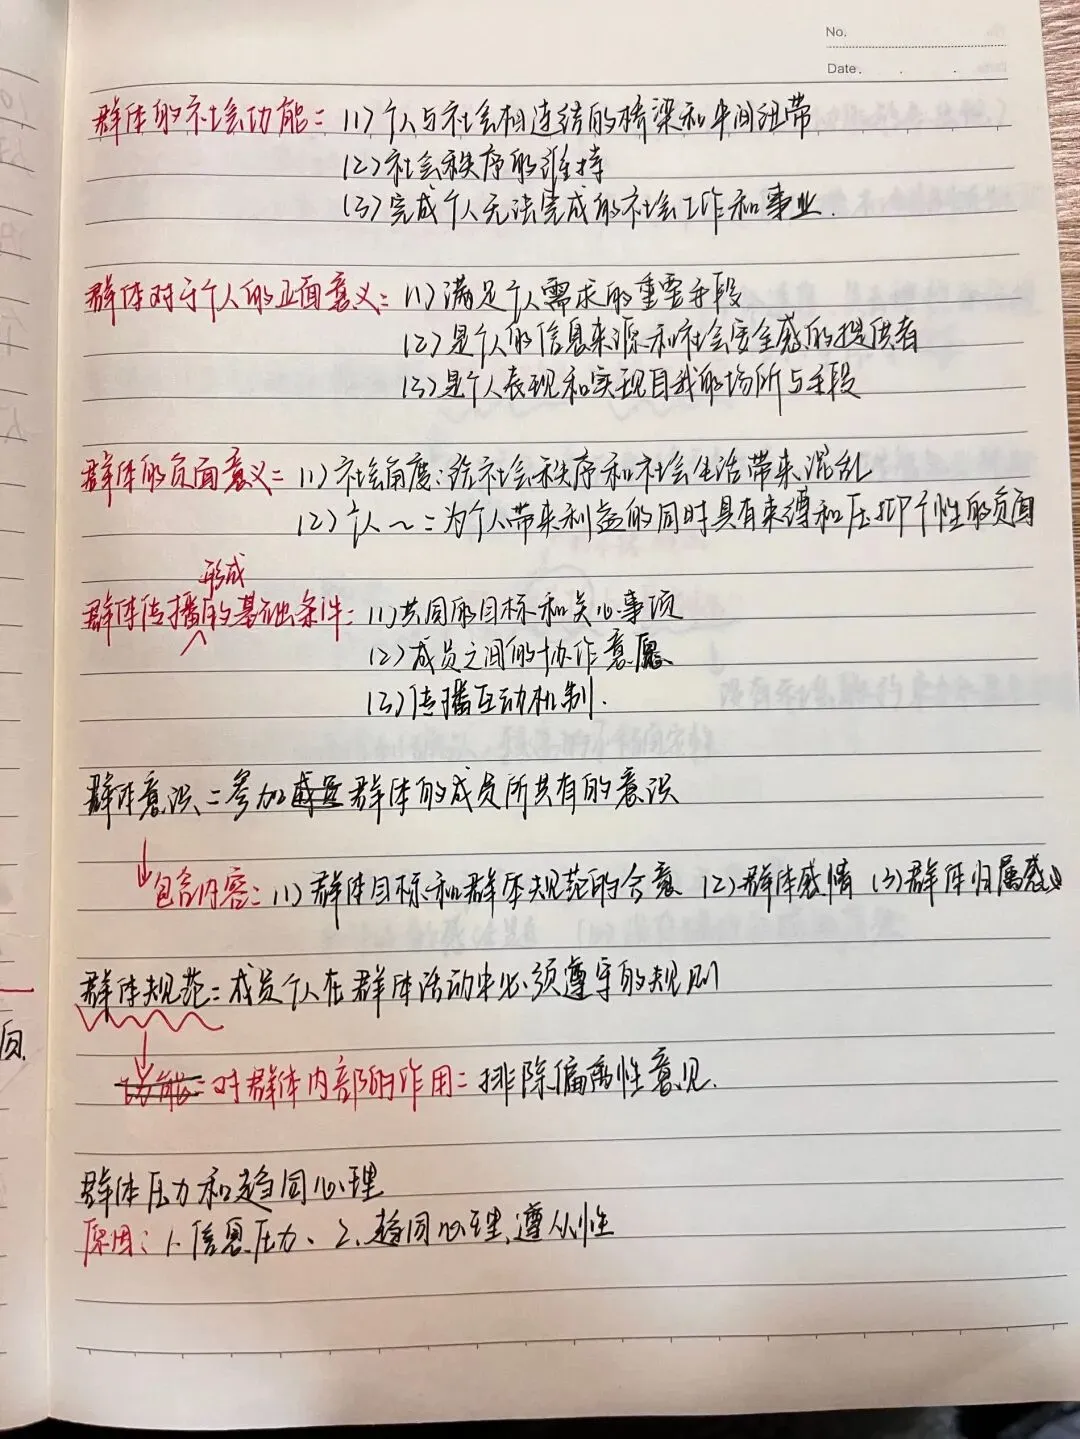 No.
Date.
群体的社会功能：(1)个人与社会相连结的桥梁和中间纽带
(2)社会秩序的维持
(3)完成个人无法完成的社会工作和事业.
群体对于个人的正面意义：(1)满足个人需求的重要手段
(2)是个人的信息来源和社会安全感的提供者
(3)是个人表现和实现自我的场所与手段
群体的负面意义：(1)社会角度：给社会秩序和社会生活带来混乱
(2)个人～：为个人带来利益的同时具有束缚和压抑个性的负面
形成
群体传播的基础条件：(1)共同的目标和关心事项
(2)成员之间的协作意愿
(3)传播互动机制.
群体意识：参加群体的成员所共有的意识
包含内容：(1)群体目标和群体规范的合意 (2)群体感情 (3)群体归属感
群体规范：成员个人在群体活动中必须遵守的规则
功能：对群体内部的作用：排除偏离性意见.
群体压力和趋同心理
原因：1.信息压力、2.趋同心理,遵从性